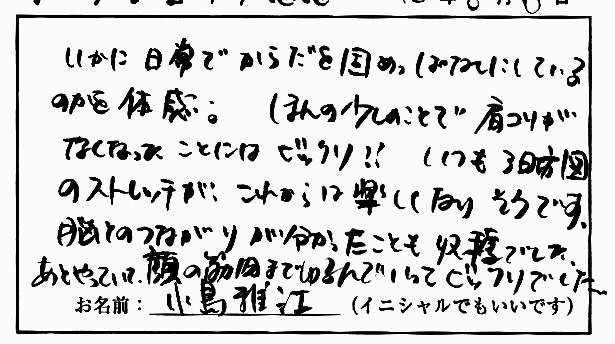 いかに日常でからだを固めっぱなしにしている
のかを体感。 ほんの少しのことで肩コリが
なくなったことにはビックリ!! いつも3日坊
のストレッチが、これからは楽しくなりそうです。
脳とのつながりが分かったことも収穫でした。
あとやっていて、顔の筋肉まで ビックリでした〜
お名前:小島雅江 (イニシャルでもいいです)